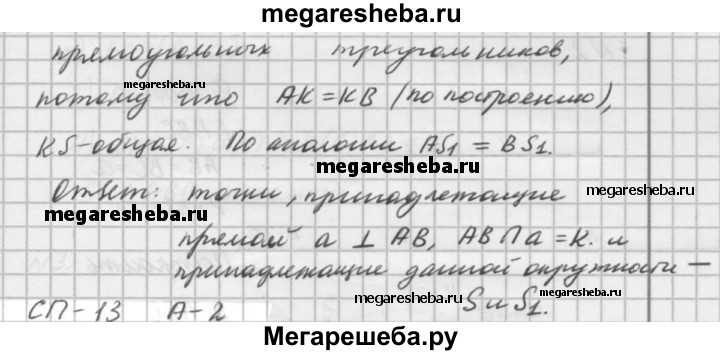 megaresheba.ru
прямоугольных треугольников,
megaresheba.ru
потому что AK = KB (по построению),
megaresheba.ru
KS-общая. По аналогии AS₁ = BS₁.
megaresheba.ru
Ответ: точки, принадлежащие
megaresheba.ru
megaresheba.ru
прямой a ⊥ AB, AB ∩ a = K. и
принадлежащие данной окружности —
megaresheba.ru
S и S₁.
СП-13 А-2
Мегарешеба.ру